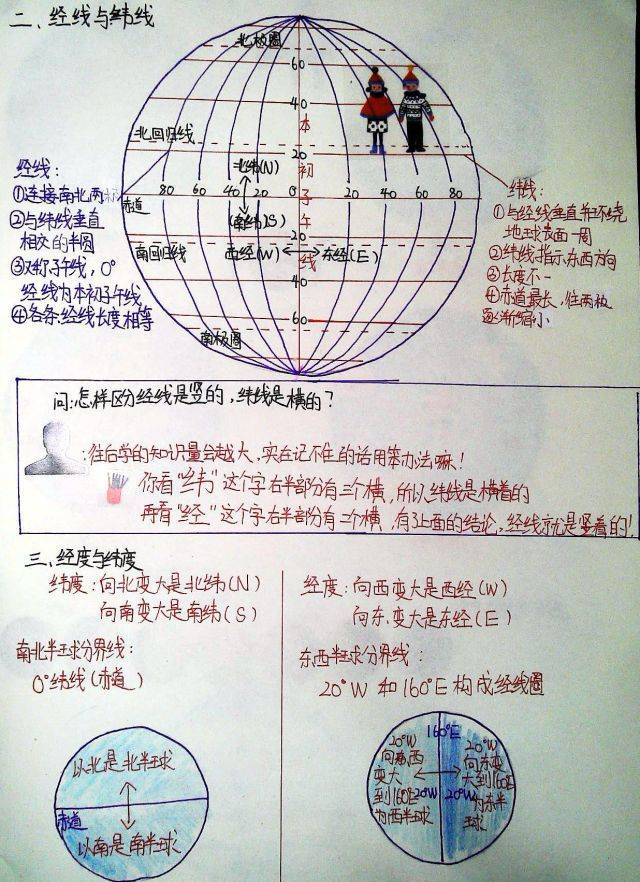 二、经线与纬线
北极圈
60
40
本
北回归线
20
初
北纬(N)
子
80 60 40 20 0 20 40 60 80
赤道
午
(南纬)(S)
20
南回归线
西经(W) 东经(E)
线
40
60
南极圈
经线：
①连接南北两
②与纬线垂直
相交的半圆
③又称子午线，0°
经线为本初子午线
④各条经线长度相等
纬线：
①与经线垂直并环绕
地球表面一周
②纬线指示东西方向
③长度不一
④赤道最长，往两极
逐渐缩小
问：怎样区分经线是竖的，纬线是横的？
：往后学的知识量会越大、实在记不住的话用笨办法嘛！
你看“纬”这个字右半部分有三个横，所以纬线是横着的
再看“经”这个字右半部分有二个横，有了上面的结论，经线就是竖着的！
三、经度与纬度
纬度：向北变大是北纬(N)
向南变大是南纬(S)
南北半球分界线：
0°纬线(赤道)
以北是北半球
赤道
以南是南半球
经度：向西变大是西经(W)
向东变大是东经(E)
东西半球分界线：
20°W 和 160°E 构成经线圈
160°E
20°W
向西
变大
到160E
为西半球
20W
20°W
向东变
大到160E
为东半
球
20W